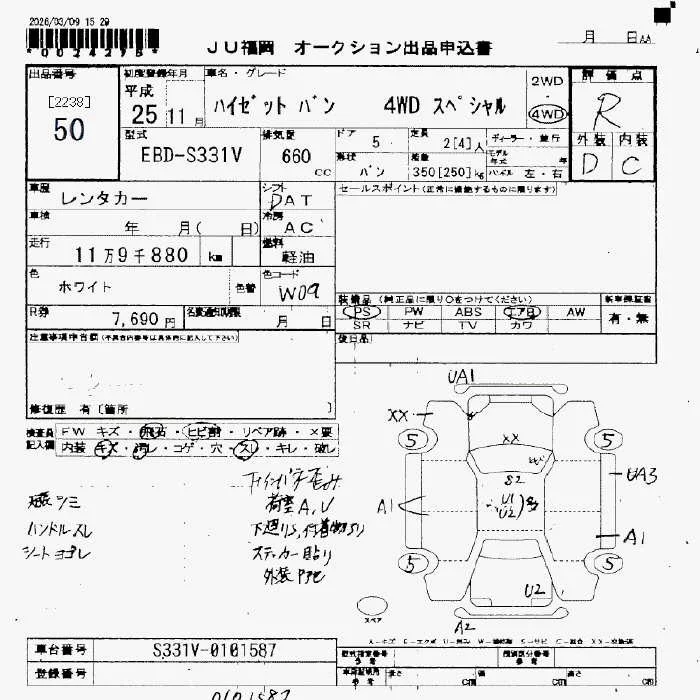 2026/03/09 15 29
*0024278*
JU福岡 オークション出品申込書
月 日
出品番号
[2238]
50
初度登録年月
平成
25 11月
車名・グレード
ハイゼット バン 4WD スペシャル
2WD
4WD
評価点
R
外装 内装
D C
型式
EBD-S331V
排気量
660
CC
ドア
5
定員
2[4]人
ディーラー・並行
形状
バン
積量
350[250]kg
モデル年式 年
ハンドル 左・右
車歴
レンタカー
シフト
DAT
セールスポイント(正常に機能するものに限ります)
車検
年 月( 日)
冷房
AC
走行
11万9千880 km
燃料
軽油
色
ホワイト
色替
色コード
W09
装備品(純正品に限り○をつけてください)
新車保証書
PS PW ABS エアB AW
有・無
SR ナビ TV カワ
R券
7,690円
名変通知期限
月 日
注意事項申告欄(不具合内容等は具体的に記入して下さい)
後日品
修復歴 有[箇所 ]
検査員記入欄
FW キズ・飛石・ヒビ割・リペア跡・×要
内装 キズ・汚レ・コゲ・穴・スレ・キレ・破レ
内張シミ
ハンドルスレ
シートヨゴレ
荷室A,U
下廻りS,付着物有り
ステッカー貼り
外装
UA1
XX
XX
5
5
S2
U1
U2
UA3
A1
A1
5
5
U2
A2
スペア
A-キズ E-エクボ U-凹み W-補修跡 S-サビ C-腐食 XX-交換済
車台番号
S331V-0101587
登録番号
型式指定番号
参考
類別区分番号
参考
車両記載用
参考
長さ cm
幅 cm
高さ cm
0101587